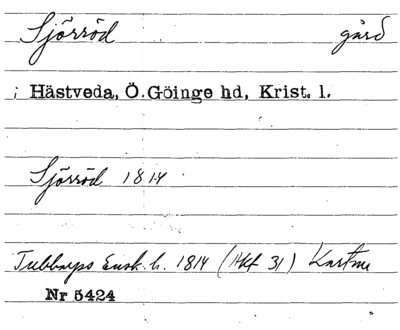 Sjörröd gård
; Hästveda, Ö.Göinge hd, Krist. l.
Sjörröd 1814
Tubbarps Ensk. h. 1814 (Akt 31)
Nr 5424